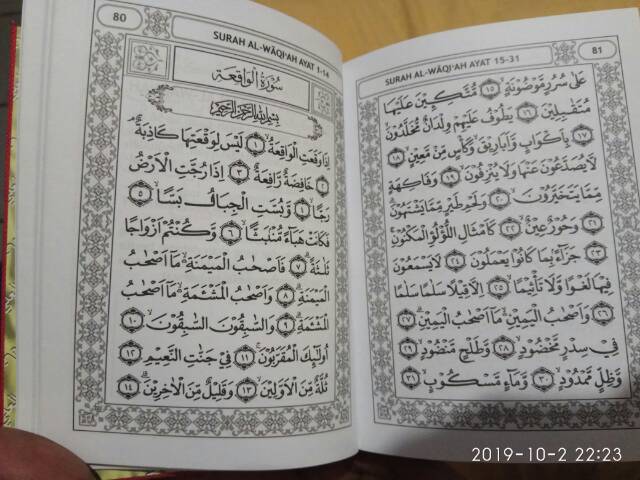 80
SURAH AL-WĀQI'AH AYAT 1-14
سُوْرَةُ الْوَاقِعَةِ
بِسْمِ اللهِ الرَّحْمٰنِ الرَّحِيْمِ
اِذَا وَقَعَتِ الْوَاقِعَةُۙ ﴿١﴾ لَيْسَ لِوَقْعَتِهَا كَاذِبَةٌۘ
﴿٢﴾ خَافِضَةٌ رَّافِعَةٌۙ ﴿٣﴾ اِذَا رُجَّتِ الْاَرْضُ
رَجًّاۙ ﴿٤﴾ وَّبُسَّتِ الْجِبَالُ بَسًّاۙ ﴿٥﴾
فَكَانَتْ هَبَاۤءً مُّنْۢبَثًّاۙ ﴿٦﴾ وَّكُنْتُمْ اَزْوَاجًا
ثَلٰثَةًۗ ﴿٧﴾ فَاَصْحٰبُ الْمَيْمَنَةِ ەۙ مَآ اَصْحٰبُ
الْمَيْمَنَةِۗ ﴿٨﴾ وَاَصْحٰبُ الْمَشْـَٔمَةِ ەۙ مَآ اَصْحٰبُ
الْمَشْـَٔمَةِۗ ﴿٩﴾ وَالسّٰبِقُوْنَ السّٰبِقُوْنَۙ ﴿١٠﴾
اُولٰۤىِٕكَ الْمُقَرَّبُوْنَۚ ﴿١١﴾ فِيْ جَنّٰتِ النَّعِيْمِ ﴿١٢﴾
ثُلَّةٌ مِّنَ الْاَوَّلِيْنَۙ ﴿١٣﴾ وَقَلِيْلٌ مِّنَ الْاٰخِرِيْنَۗ ﴿١٤﴾
SURAH AL-WĀQI'AH AYAT 15-31
81
عَلٰى سُرُرٍ مَّوْضُوْنَةٍۙ ﴿١٥﴾ مُّتَّكِـِٕيْنَ عَلَيْهَا
مُتَقٰبِلِيْنَ ﴿١٦﴾ يَطُوْفُ عَلَيْهِمْ وِلْدَانٌ مُّخَلَّدُوْنَۙ
﴿١٧﴾ بِاَكْوَابٍ وَّاَبَارِيْقَۙ وَكَأْسٍ مِّنْ مَّعِيْنٍۙ ﴿١٨﴾
لَّا يُصَدَّعُوْنَ عَنْهَا وَلَا يُنْزِفُوْنَۙ ﴿١٩﴾ وَفَاكِهَةٍ
مِّمَّا يَتَخَيَّرُوْنَۙ ﴿٢٠﴾ وَلَحْمِ طَيْرٍ مِّمَّا يَشْتَهُوْنَۗ
﴿٢١﴾ وَحُوْرٌ عِيْنٌۙ ﴿٢٢﴾ كَاَمْثَالِ اللُّؤْلُؤِ الْمَكْنُوْنِۚ
﴿٢٣﴾ جَزَاۤءًۢ بِمَا كَانُوْا يَعْمَلُوْنَ ﴿٢٤﴾ لَا يَسْمَعُوْنَ
فِيْهَا لَغْوًا وَّلَا تَأْثِيْمًاۙ ﴿٢٥﴾ اِلَّا قِيْلًا سَلٰمًا سَلٰمًا
﴿٢٦﴾ وَاَصْحٰبُ الْيَمِيْنِ ەۙ مَآ اَصْحٰبُ الْيَمِيْنِۗ ﴿٢٧﴾
فِيْ سِدْرٍ مَّخْضُوْدٍۙ ﴿٢٨﴾ وَّطَلْحٍ مَّنْضُوْدٍۙ ﴿٢٩﴾
وَّظِلٍّ مَّمْدُوْدٍۙ ﴿٣٠﴾ وَّمَاۤءٍ مَّسْكُوْبٍۙ ﴿٣١﴾
2019-10-2 22:23